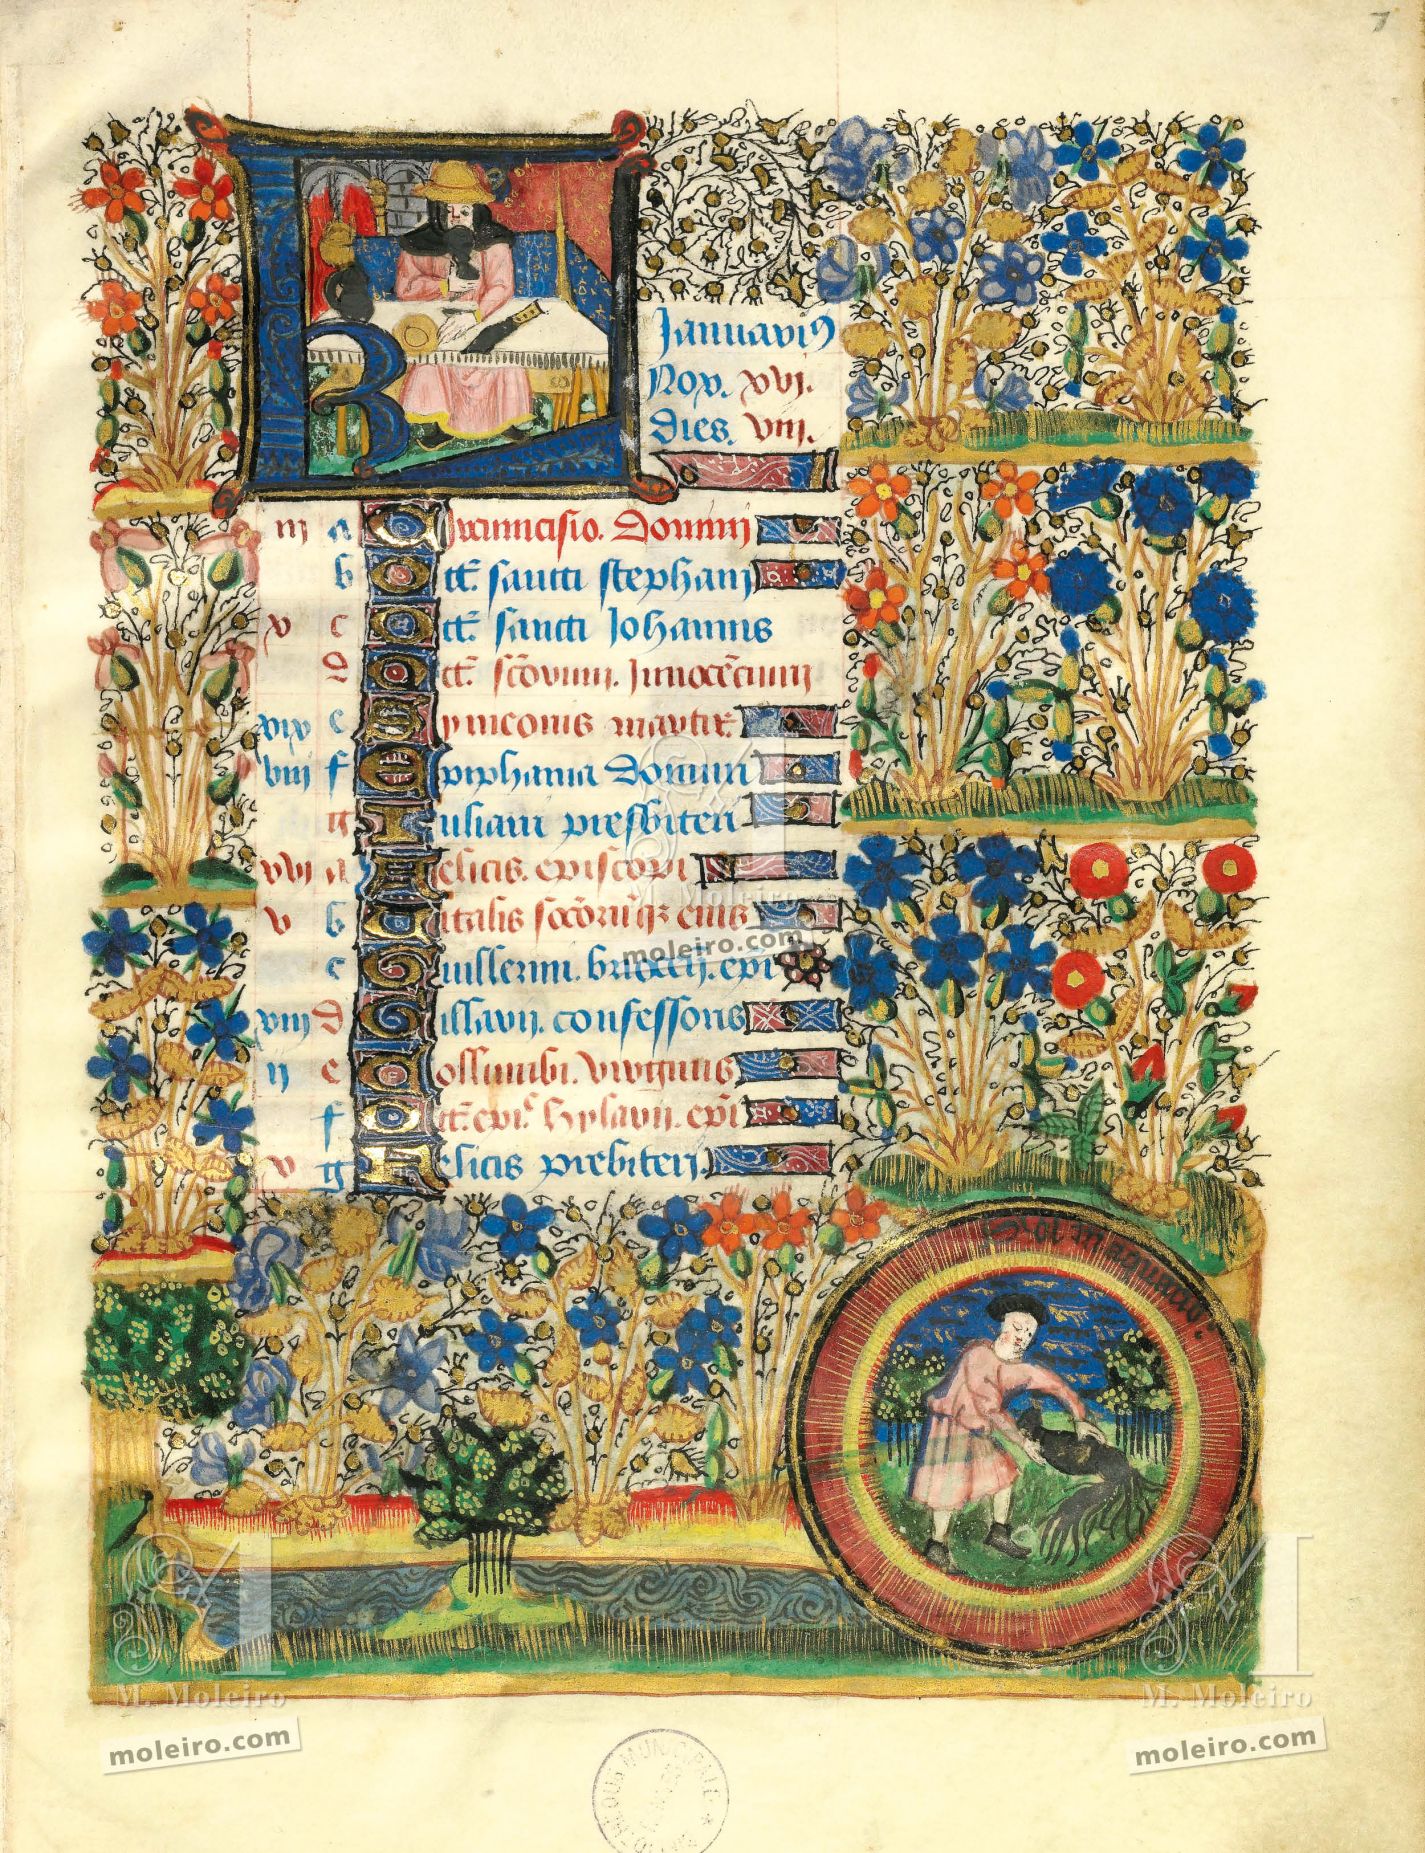 7
Januarius
Nox. xvi.
dies. viii.
iii a Circuncisio. Domini
b Oct. sancti stephani
v c Oct. sancti Johannis
d Oct. sctorum. Innocencium
xix e Symeonis martir
viii f Epiphania Domini
g Iuliani presbiteri
xvi a Felicis. episcopi
v b Vitalis sociorumque eius
c Guillermi. epi
xiii d Gillarij. confessoris
ii e Collumbi. virginis
f Oct. epi. hylarij. epi
v g Felicis prebiteri.
Sol in aquario.
M. Moleiro
moleiro.com
M. Moleiro
moleiro.com
M. Moleiro
moleiro.com